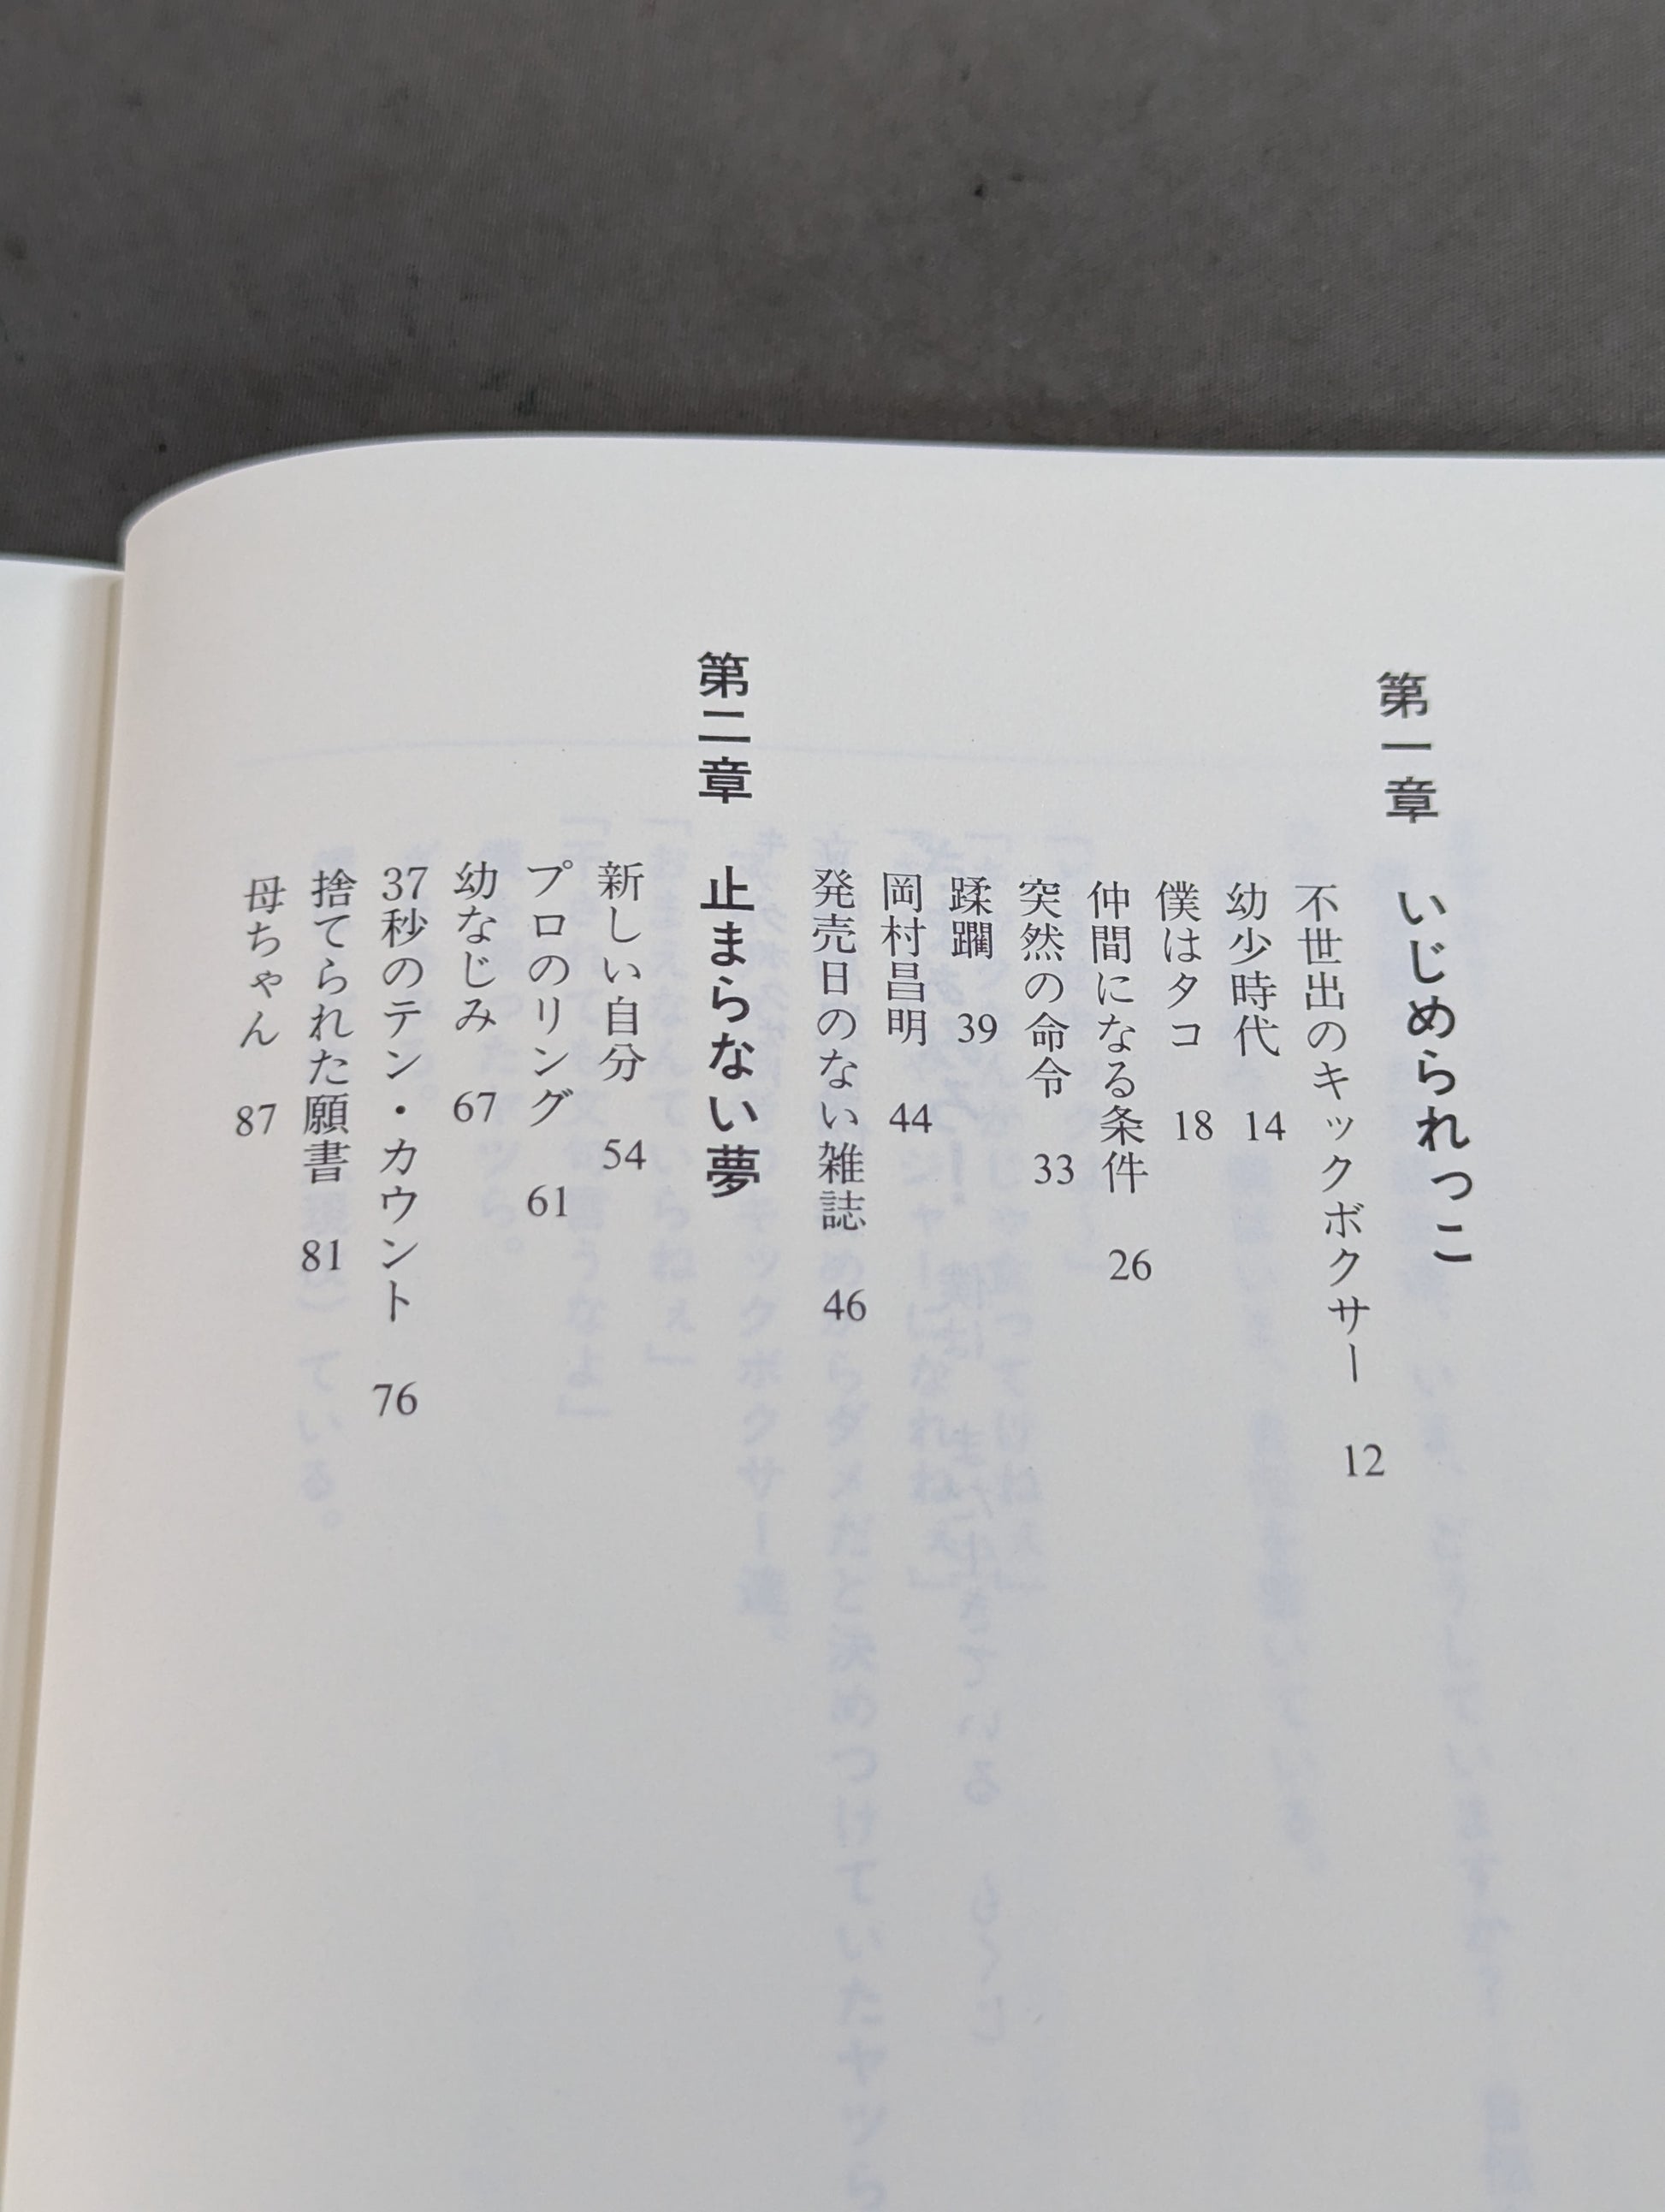 第一章 いじめられっこ
不世出のキックボクサー 12
幼少時代 14
僕はタコ 18
仲間になる条件 26
突然の命令 33
蹂躙 39
岡村昌明 44
発売日のない雑誌 46
第二章 止まらない夢
新しい自分 54
プロのリング 61
幼なじみ 67
37秒のテン・カウント 76
捨てられた願書 81
母ちゃん 87